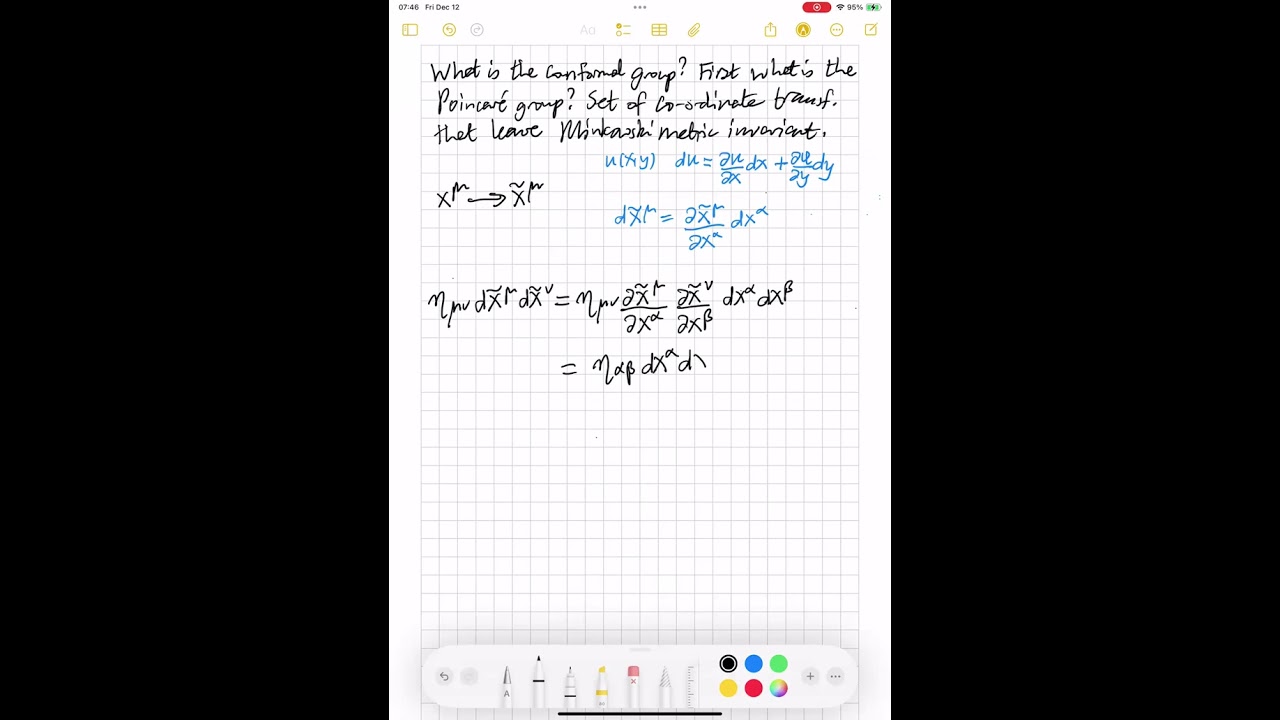 07:46 Fri Dec 12
95%
Aa
What is the conformal group? First what is the
Poincaré group? Set of co-ordinate transf.
that leave Minkowski metric invariant.
u(x,y) du = ∂u/∂x dx + ∂u/∂y dy
x^μ → x̃^μ
dx̃^μ = ∂x̃^μ/∂x^α dx^α
η_μν dx̃^μ dx̃^ν = η_μν ∂x̃^μ/∂x^α ∂x̃^ν/∂x^β dx^α dx^β
= η_αβ dx^α d
A